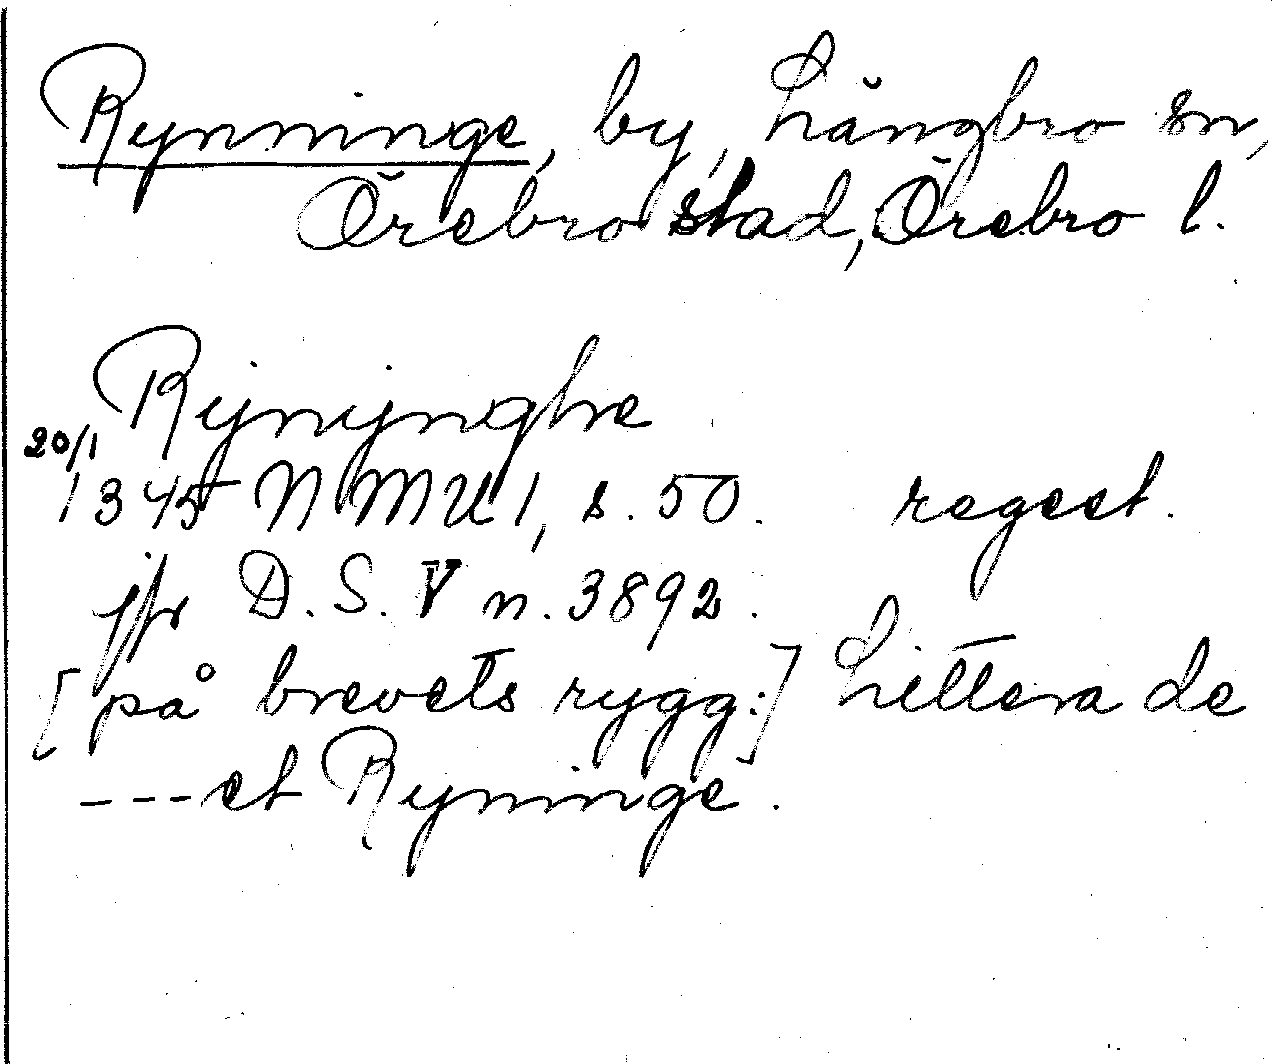 Rynninge, by, Längbro sn,
Örebro stad, Örebro l.
Rynynghe
20/1
1345 NMU 1, s. 50. regest.
jfr D. S. V n. 3892.
[på brevets rygg:] Littera de
--- et Ryninge.